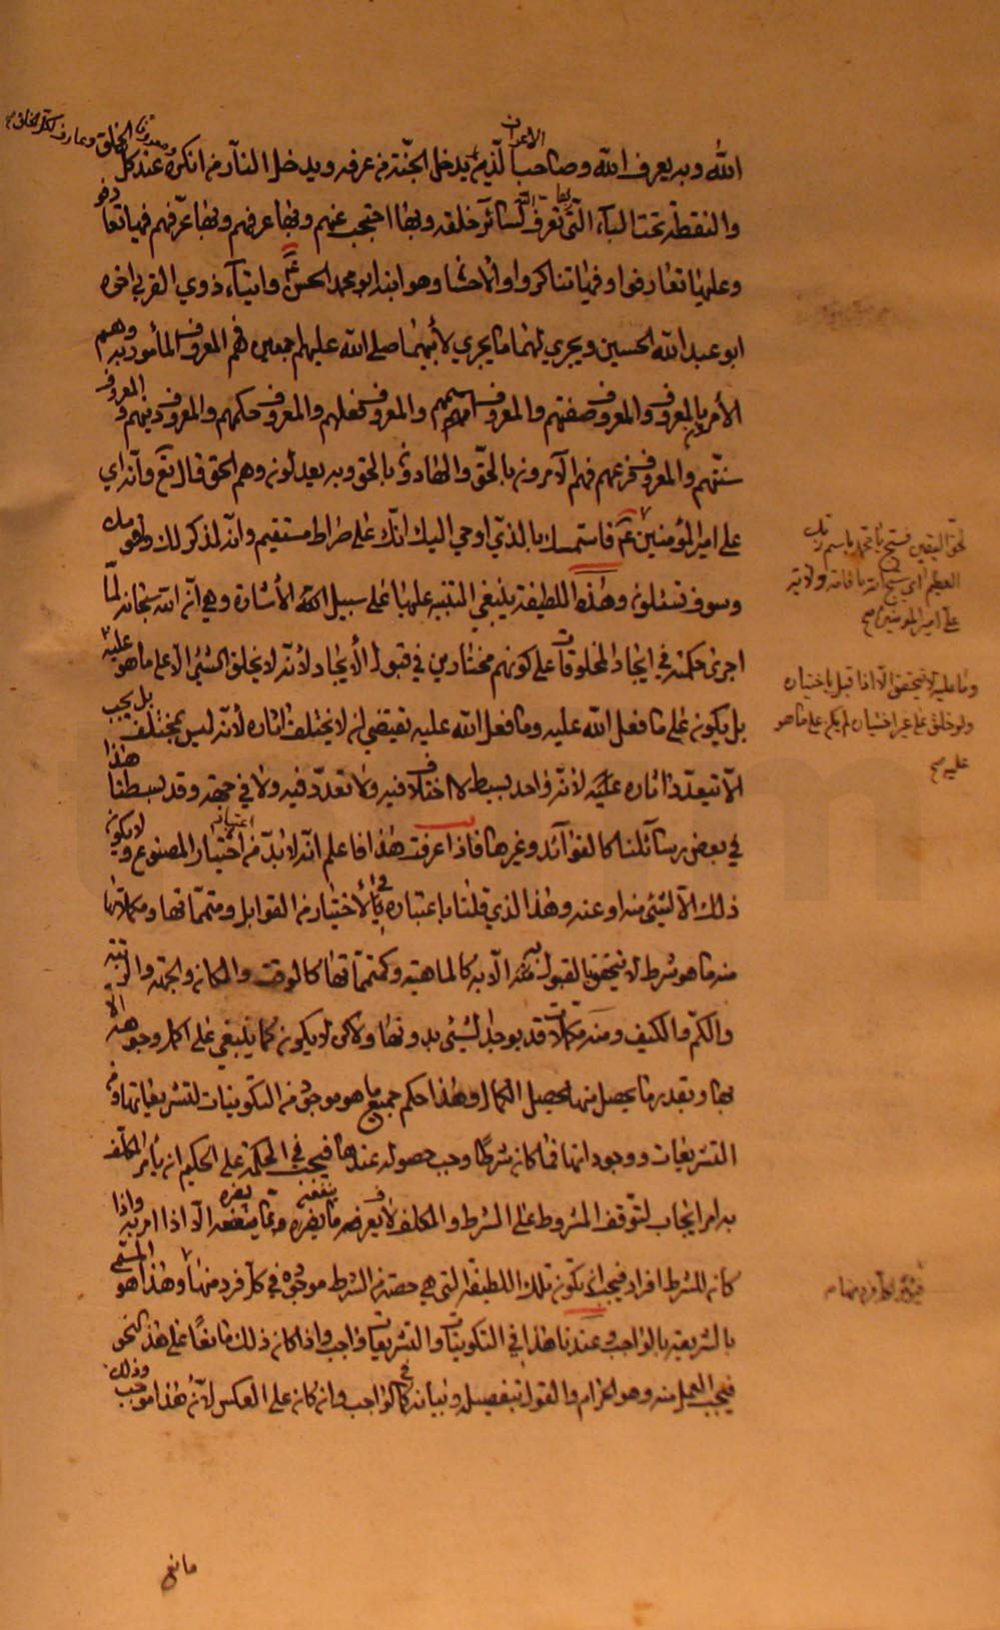 الله وبه يعرف الله وصاحب الاعراف الذين يدخل الجنّة من عرفه ويدخل النار من انكره عند كل الخلق
والنقطة تحت الباء التى تعرف لسائر خلقه وبها احتجب عنهم وبها عرفهم وبها عرّفهم فيها تعا
وعليها تعارفوا وفيها تناكروا والاحسان وهو ابنه ابو محمد الحسن عم وايتاء ذوي القربى اخوه
ابو عبد الله الحسين ويجري لهما ما يجري لأبيهما صلى الله عليهم اجمعين فهم المعروف المأمور به وهم
الآمرون بالمعروف والمعروف صفتهم والمعروف اسمهم والمعروف فعلهم والمعروف حكمهم والمعروف دينهم والمعروف
سنّتهم والمعروف فرعهم فهم الآمرون بالحقّ والهادون بالحق وبه يعدلون وهم الحق قال تع وانه اي
على امير المؤمنين عم فاستمسك بالذي اوحي اليك انّك على صراط مستقيم وانه لذكر لك ولقومك
وسوف تسئلون وهذه اللطيفة ينبغي التنبيه عليها على سبيل الاشارة وهي انّ الله سبحانه لمّا
اجرى حكمته في ايجاد المخلوقات على كونهم مختارين في قبول الأيجاد لأنّه لا يخلق الشئ الا على ما هو عليه
بل يكون على ما فعل الله عليه وما فعل الله عليه تقتضي ان لا يختلف اثاره لأنّه ليس بمختلف بل يجب
الّا تتعدّد اثاره عليه لانّه واحد بسيط لا اختلاف فيه ولا تعدّد فيه ولا في جهته وقد بسطنا هذا
في بعض رسائلنا كالفوائد وغيرها فاذا عرفت هذا فاعلم انّه لا بدّ من اختيار المصنوع ولا يكون
ذلك الّا لشئ منه او عنه وهذا الذي قلنا باعتباره في الأختيار من القوابل ومتمّماتها ومكمّلاتها
منه ما هو شرط لا يتحقق القبول منه الّا به كالماهية وكمتمّماتها كالوقت والمكان والجهة والرتبة
والكمّ والكيف ومنه مكمّلات قد يوجد الشئ بدونها ولكن لا يكون كما ينبغي على اكمل وجوهه الّا
بها وبقدر ما يحصل منها يحصل الكمال وهذا حكم جميع ما هو موجود من التكوينات لتشريعاتها ومن
التشريعات ووجوداتها فما كان شرطا وجب حصوله عندها فيجب في الحكمة على الحكيم ان يأمر المكلّف
به امر ايجاب لتوقف المشروط على الشرط والمكلف لا يعرف ما يضره وما ينفعه الّا اذا امر به واذا
كان للشرط افراد فيجب ان تكون تلك اللطيفة التي هي حصة من الشرط موجودة في كل فرد منها وهذا هو المسمّى
بالشريعة بالواجب عندنا هذا في التكوينات والتشريعات واجب واذا كان ذلك مانعًا على هذا النحو
فيجب العمل منه وهو الحرام والقول بتفصيله وبيانه كما في الواجب وان كان على العكس لأنّ هذا موجب وذلك
مانع
لحقّ اليقين فسبّح يا محمد باسم ربك
العظيم اي سبّح الله باقامة ولاية
علي امير المؤمنين صح
وما عليه لا يتحقق الّا اذا قبل باختياره
ولو خلق على غير اختياره لم يكن على ما هو
عليه صح